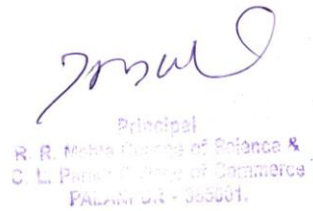 Principal
R. R. Mehta College of Science &
C. L. Parikh College of Commerce
PALANPUR - 385001.